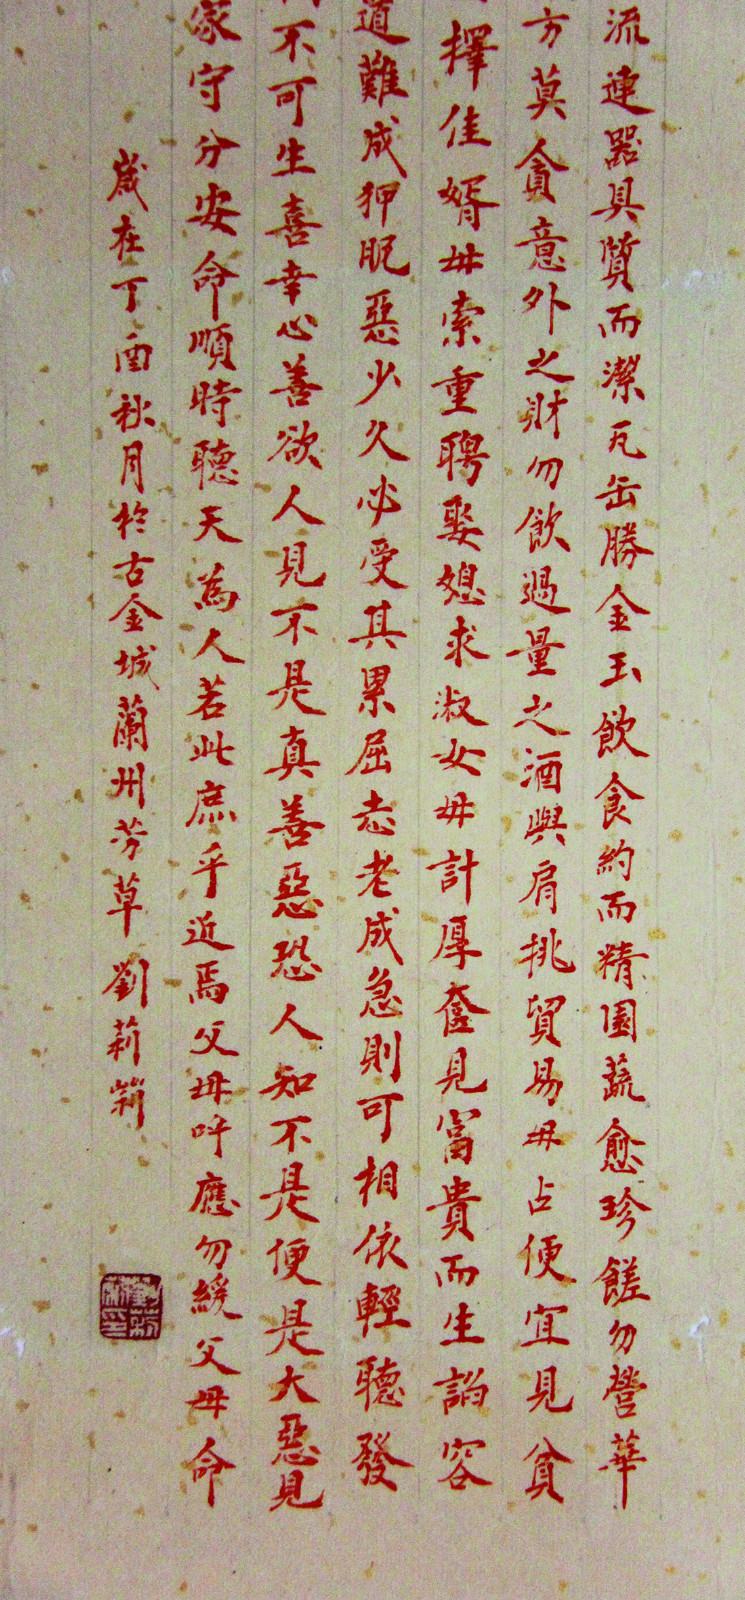 流連器具質而潔瓦缶勝金玉飲食約而精園蔬愈珍饈勿營華
方莫貪意外之財勿飲過量之酒與肩挑貿易毋占便宜見貧
擇佳婿毋索重聘娶媳求淑女毋計厚奩見富貴而生諂容
道難成狎眤惡少久必受其累屈志老成急則可相依輕聽發
不可生喜幸心善欲人見不是真善惡恐人知不是便是大惡見
家守分安命順時聽天為人若此庶乎近焉父母呼應勿緩父母命
歲在丁酉秋月於古金城蘭州芳草劉莉莉